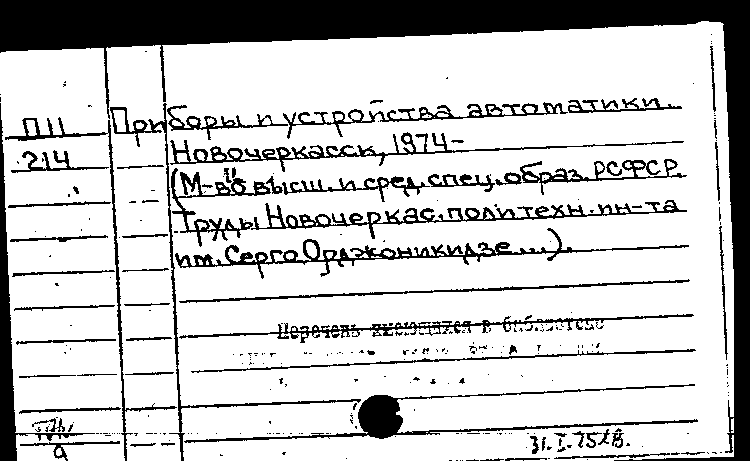 П11 Приборы и устройства автоматики.
214 Новочеркасск, 1974-
(М-во высш. и сред. спец. образ. РСФСР.
Труды Новочеркас. политехн. ин-та
им. Серго Орджоникидзе...).
Перечень имеющихся в библиотеке
31.I.75